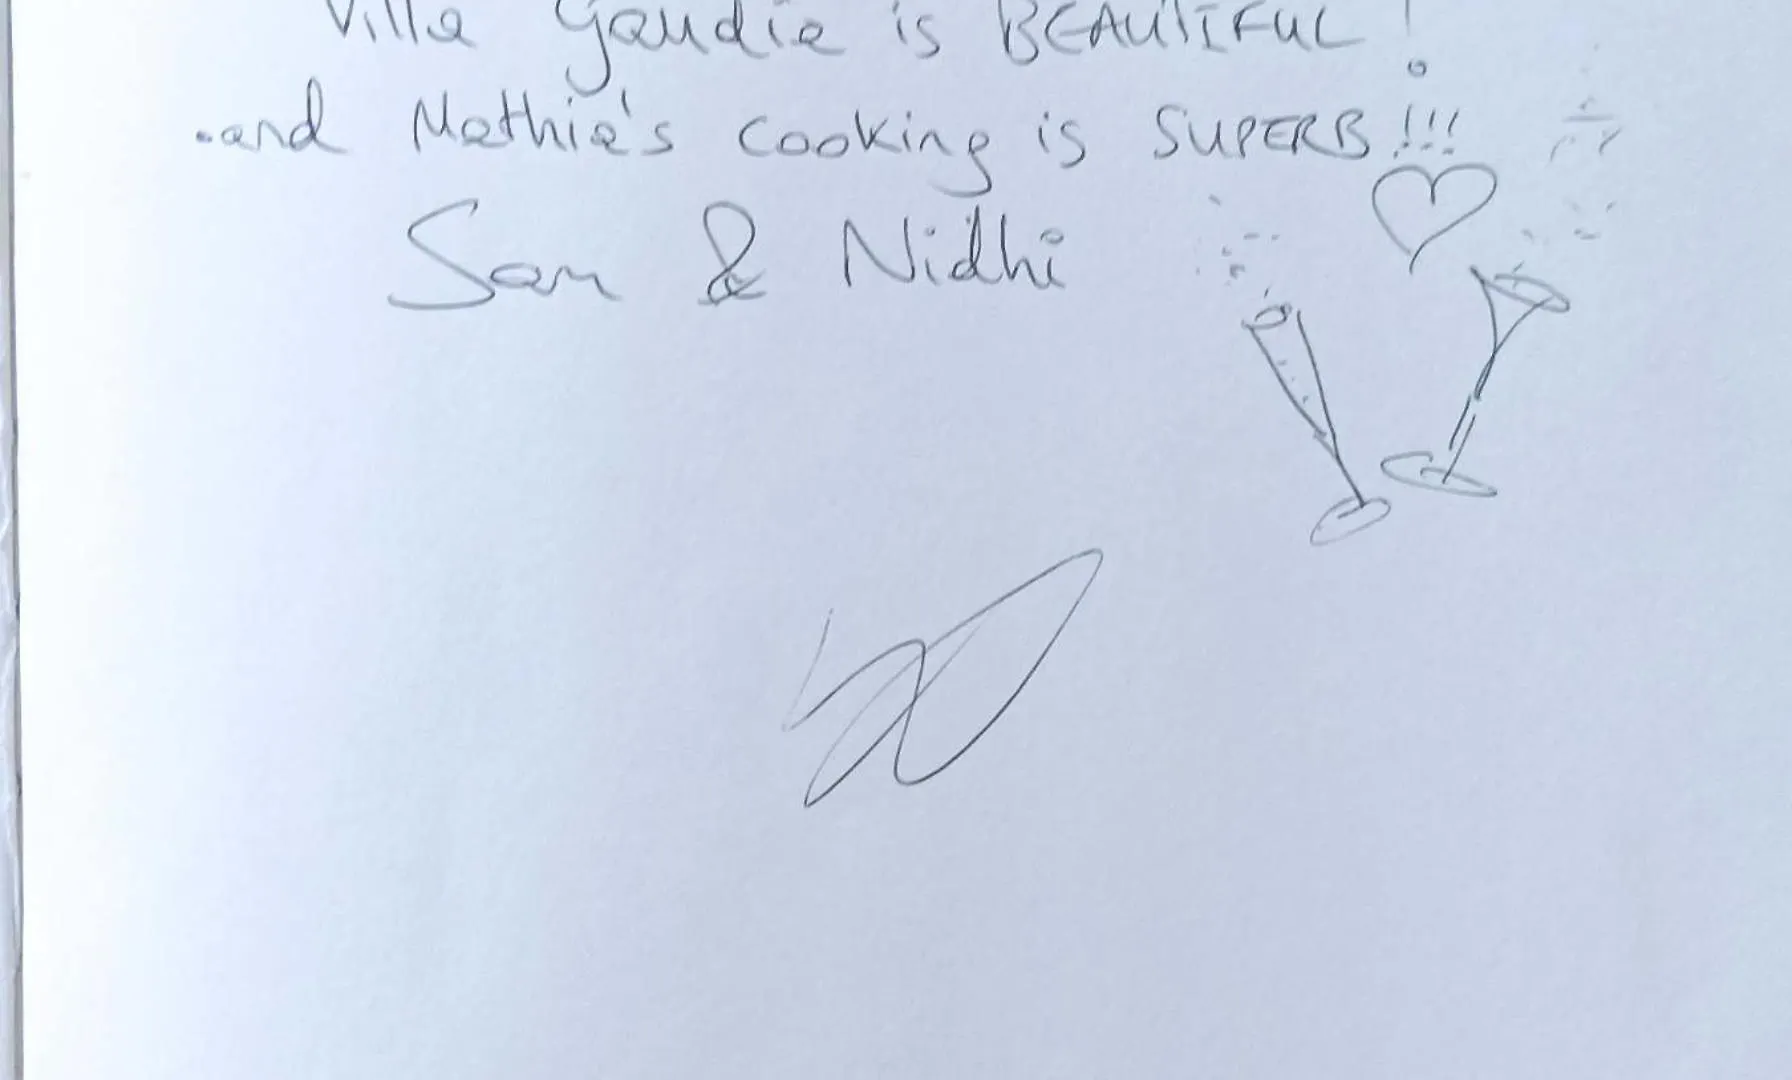 Villa Gaudia is BEAUTIFUL!
.and Mathia's cooking is SUPERB!!!
Sam & Nidhi